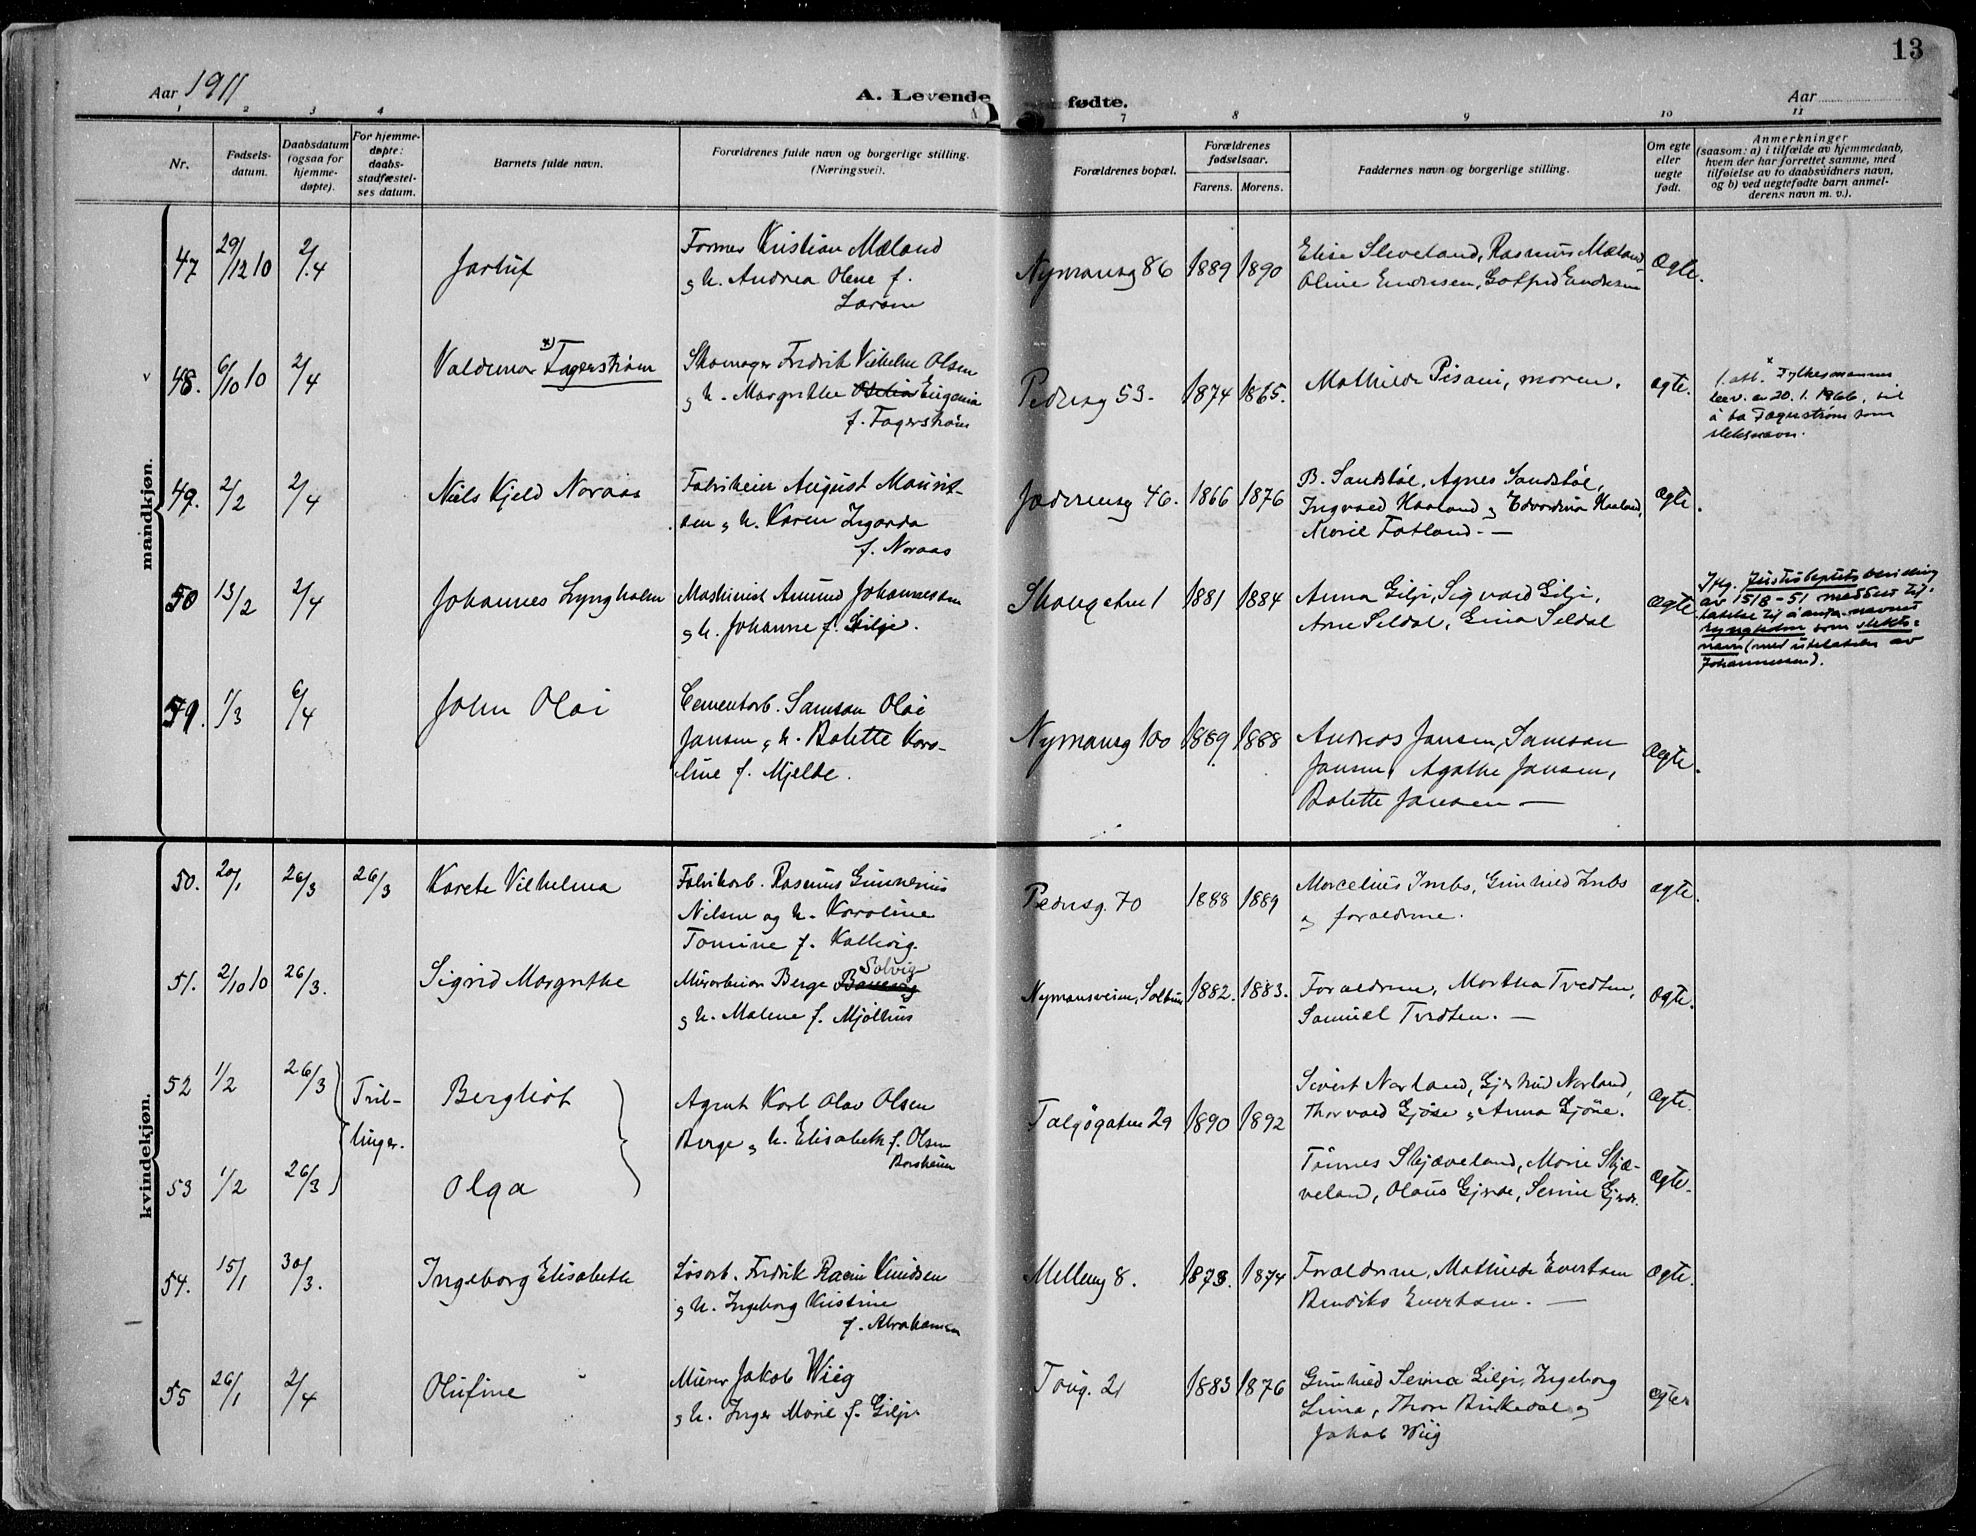 13
Aar 1911
A. Levende fødte.
Aar
1 2 3 4 7 8 9 10 11
Nr.
Fødsels-
datum.
Daabsdatum
(ogsaa for
hjemme-
døpte).
For hjemme-
døpte:
daabs-
stadfæstel-
ses datum.
Barnets fulde navn.
Forældrenes fulde navn og borgerlige stilling.
(Næringsvei).
Forældrenes bopæl.
Forældrenes
fødselsaar.
Farens. Morens.
Faddernes navn og borgerlige stilling.
Om egte
eller
uegte
født.
Anmerkninger
(saasom: a) i tilfælde av hjemmedaab,
hvem der har forrettet samme, med
tilføielse av to daabsvidners navn,
og b) ved uegtefødte barn anmel-
derens navn m. v.).
mandkjøn.
47 29/12 10 2/4 Jartuf
Former Kristian Mæland
og h. Andrea Olene f.
Larsen
Nymansg 86 1889 1890
Elise Sleveland, Rasmus Mæland
Oline Endresen, Gotfred Endresen
Ægte.
48. 6/10 10 2/4 Valdemar x) Fagerstrøm
Skomager Fredrik Vilhelm Olsen
og h. Margrethe Eugenia
f. Fagerstrøm
Pedersg 53. 1874 1865.
Mathilde Pisani, moren.
ægte.
x
Fylkesmannens
bev. av 20.1.1966, til
å ta Fagerstrøm som
slektsnavn.
49. 2/2 2/4 Niels Kjeld Noraas
Fabrikeier August Maurit-
sen og h. Karen Ingarda
f. Noraas
Jæderensg 46. 1866 1876
B. Sandstøl, Agnes Sandstøl,
Ingvald Haaland og Edvardina Haaland,
Marie Fatland. —
Ægte.
50 13/2 2/4 Johannes Lyngholm
Maskinist Amund Johannessen
og h. Johanne f. Gilje.
Skolegaten 1 1881 1884
Anna Gilje, Sigvald Gilje,
Arne Seldal, Eina Seldal
Ægte
Iflg. Justisdeptets bevilling
av 15/8-51 meddelt til-
latelse til å anta navnet
Lyngholm som slekts-
navn (med utelatelse av
Johannessen).
51. 1/3 6/4 John Olai
Cementarb. Samson Olai
Jansen og h. Bolette Karo-
line f. Mjelde.
Nymansg 100 1889 1888
Andreas Jansen, Samson
Jansen, Agathe Jansen,
Bolette Jansen —
Ægte.
kvindekjøn.
50. 20/1 26/3 26/3 Karete Vilhelma
Fabrikarb. Rasmus Gunnerius
Nilsen og h. Karoline
Tomine f. Kallevig.
Pedersg. 70 1888 1889
Marcelius Imbs, Gunhild Imbs
og forældrene.
ægte.
51. 2/10 10 26/3. Sigrid Margrethe
Murarbeider Berge Solvig
og h. Malene f. Mjølhus
Nymansveien, 1882. 1883.
Forældrene, Martha Tvedten,
Samuel Tvedten. —
Ægte.
52 1/2 26/3 Tril- Bergliot
Agent Karl Olav Olsen
Berge og h. Elisabeth f. Olsen
Borsheim
Talgøgaten 29 1890 1892
Sivert Norland, Gjertrud Norland,
Thorvald Gjøse og Anna Gjøse.
Ægte.
linger.
53 1/2 26/3 Olga
Tønnes Skjæveland, Marie Skjæ-
veland, Olaus Gjerde, Serine Gjerde.
Ægte.
54. 15/1 30/3. Ingeborg Elisabeth
Løsarb. Fredrik Rasin Knudsen
og h. Ingeborg Kristine
f. Abrahamsen
Ølleng 8. 1873. 1874
Forældrene, Mathilde Evertsen
Bendiks Evertsen. —
Ægte.
55 26/1 2/4 Olufine
Murer Jakob Wiig
og h. Inger Marie f. Gilje.
Toug. 21 1883 1876
Gunhild Serina Gilje, Ingeborg
Lima, Thore Birkedal og
Jakob Wiig
ægte